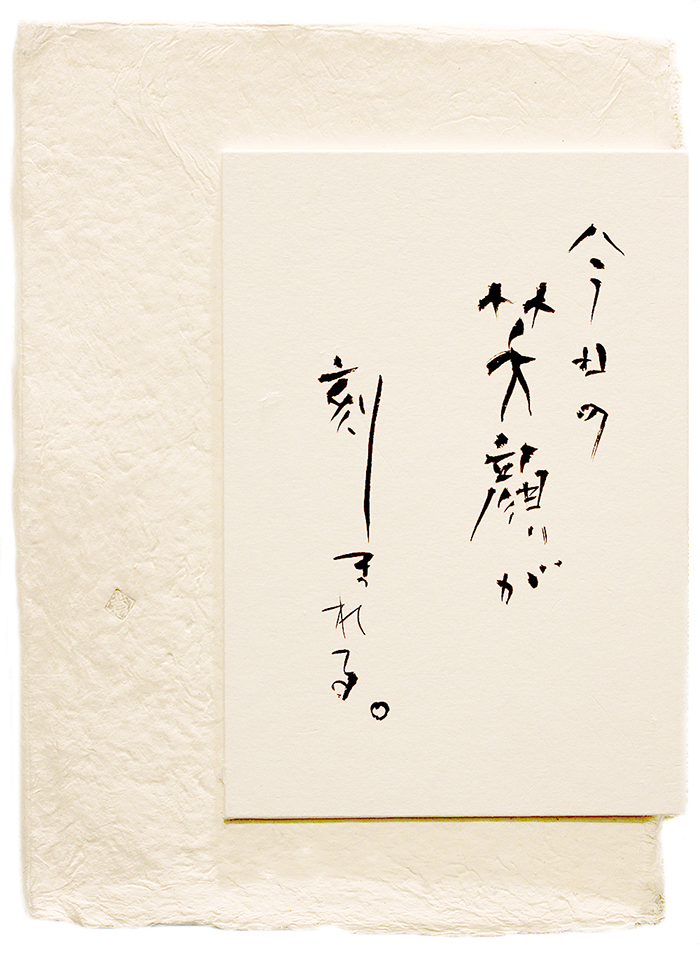 今日の
笑顔が
刻まれる。